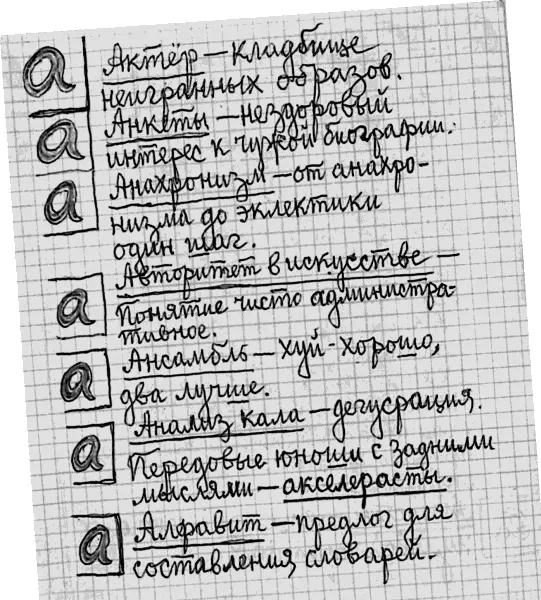 а Актёр — кладбище
неигранных образов.
а Анкеты — нездоровый
интерес к чужой биографии.
а Анахронизм — от анахро-
низма до эклектики
один шаг.
Авторитет в искусстве —
а понятие чисто администра-
тивное.
а Ансамбль — хуй - хорошо,
два лучше.
Анализ кала — дегусрация.
а Передовые юноши с задними
мыслями — акселерасты.
а Алфавит — предлог для
составления словарей.